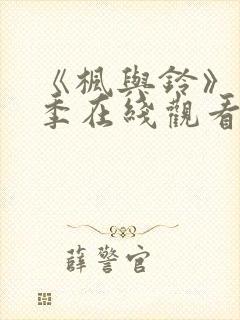 《楓與鈴》
季在綫觀看
薛警官